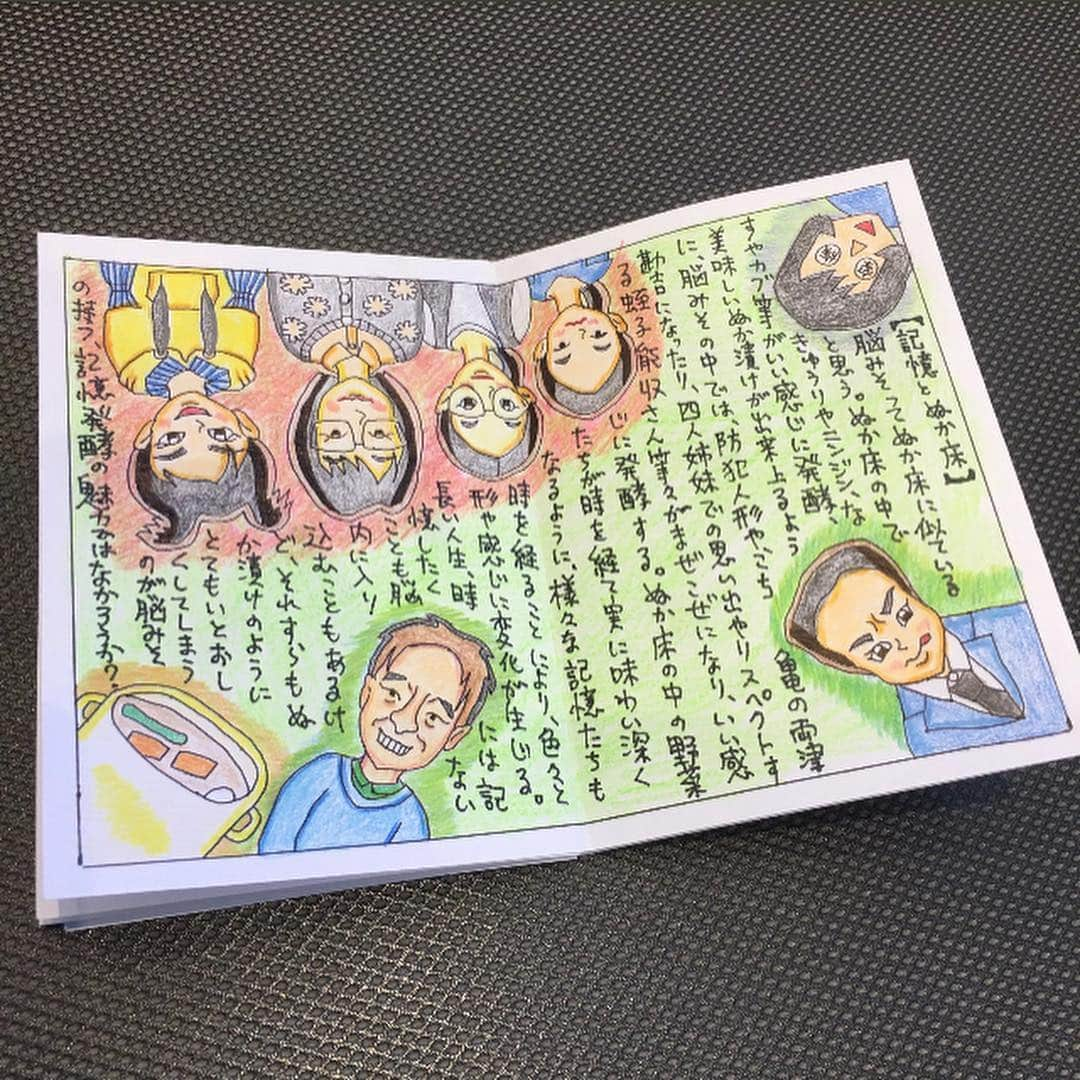 【記憶とぬか床】
脳みそってぬか床に似ている
と思う。ぬか床の中で
きゅうりやニンジン、な
すやカブ等がいい感じに発酵、
美味しいぬか漬けが出来上るよう
に、脳みその中では、防犯人形や、こち
亀の両津
勘吉になったり、四人姉妹での思い出やリスペクトす
る蛭子能収さん等々がまぜこぜになり、いい感
じに発酵する。ぬか床の中の野菜
たちが時を経て実に味わい深く
なるように、様々な記憶たちも
時を経ることにより、色々と
形や感じに変化が生じる。
長い人生、時には記
憶したくない
ことも脳
内に入り
込むこともあるけ
ど、それすらもぬ
か漬けのように
とてもいとおし
くしてしまう
のが脳みそ
の持つ記憶発酵の魅力ではなかろうか?